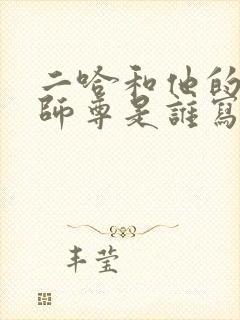 二哈和他的
師尊是誰寫
丰莹